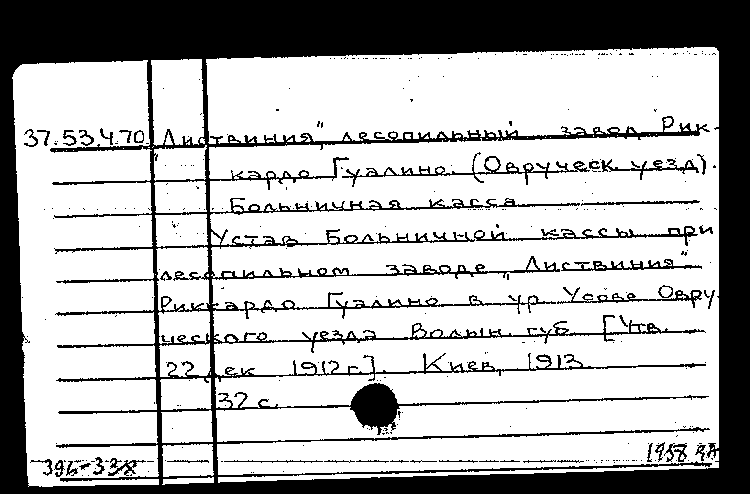 37.53.4.70 „Листвиния", лесопильный завод Рик-
кардо Гуалино. (Овручск. уезд).
Больничная касса
Устав больничной кассы при
лесопильном заводе „Листвиния"
Риккардо Гуалино в ур Усове Овру
ческого уезда Волын. губ. [Утв.
22 дек 1912 г.]. Киев, 1913.
32 с.
1958